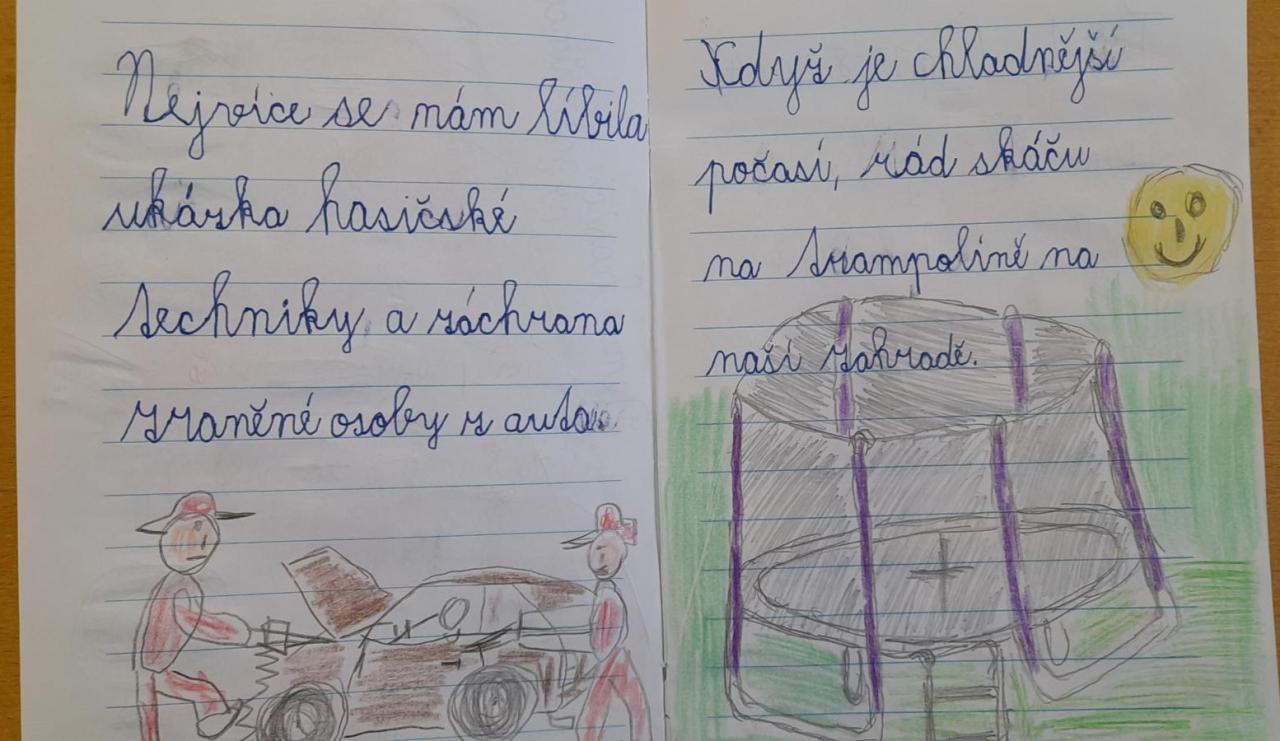 Nejvíce se mám líbila
ukázka hasičské
techniky a záchrana
zraněné osoby z auta.
Když je chladnější
počasí, rád skáču
na trampolíně na
naší zahradě.